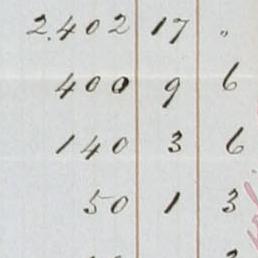 2.402 17 "
400 9 6
140 3 6
50 1 3